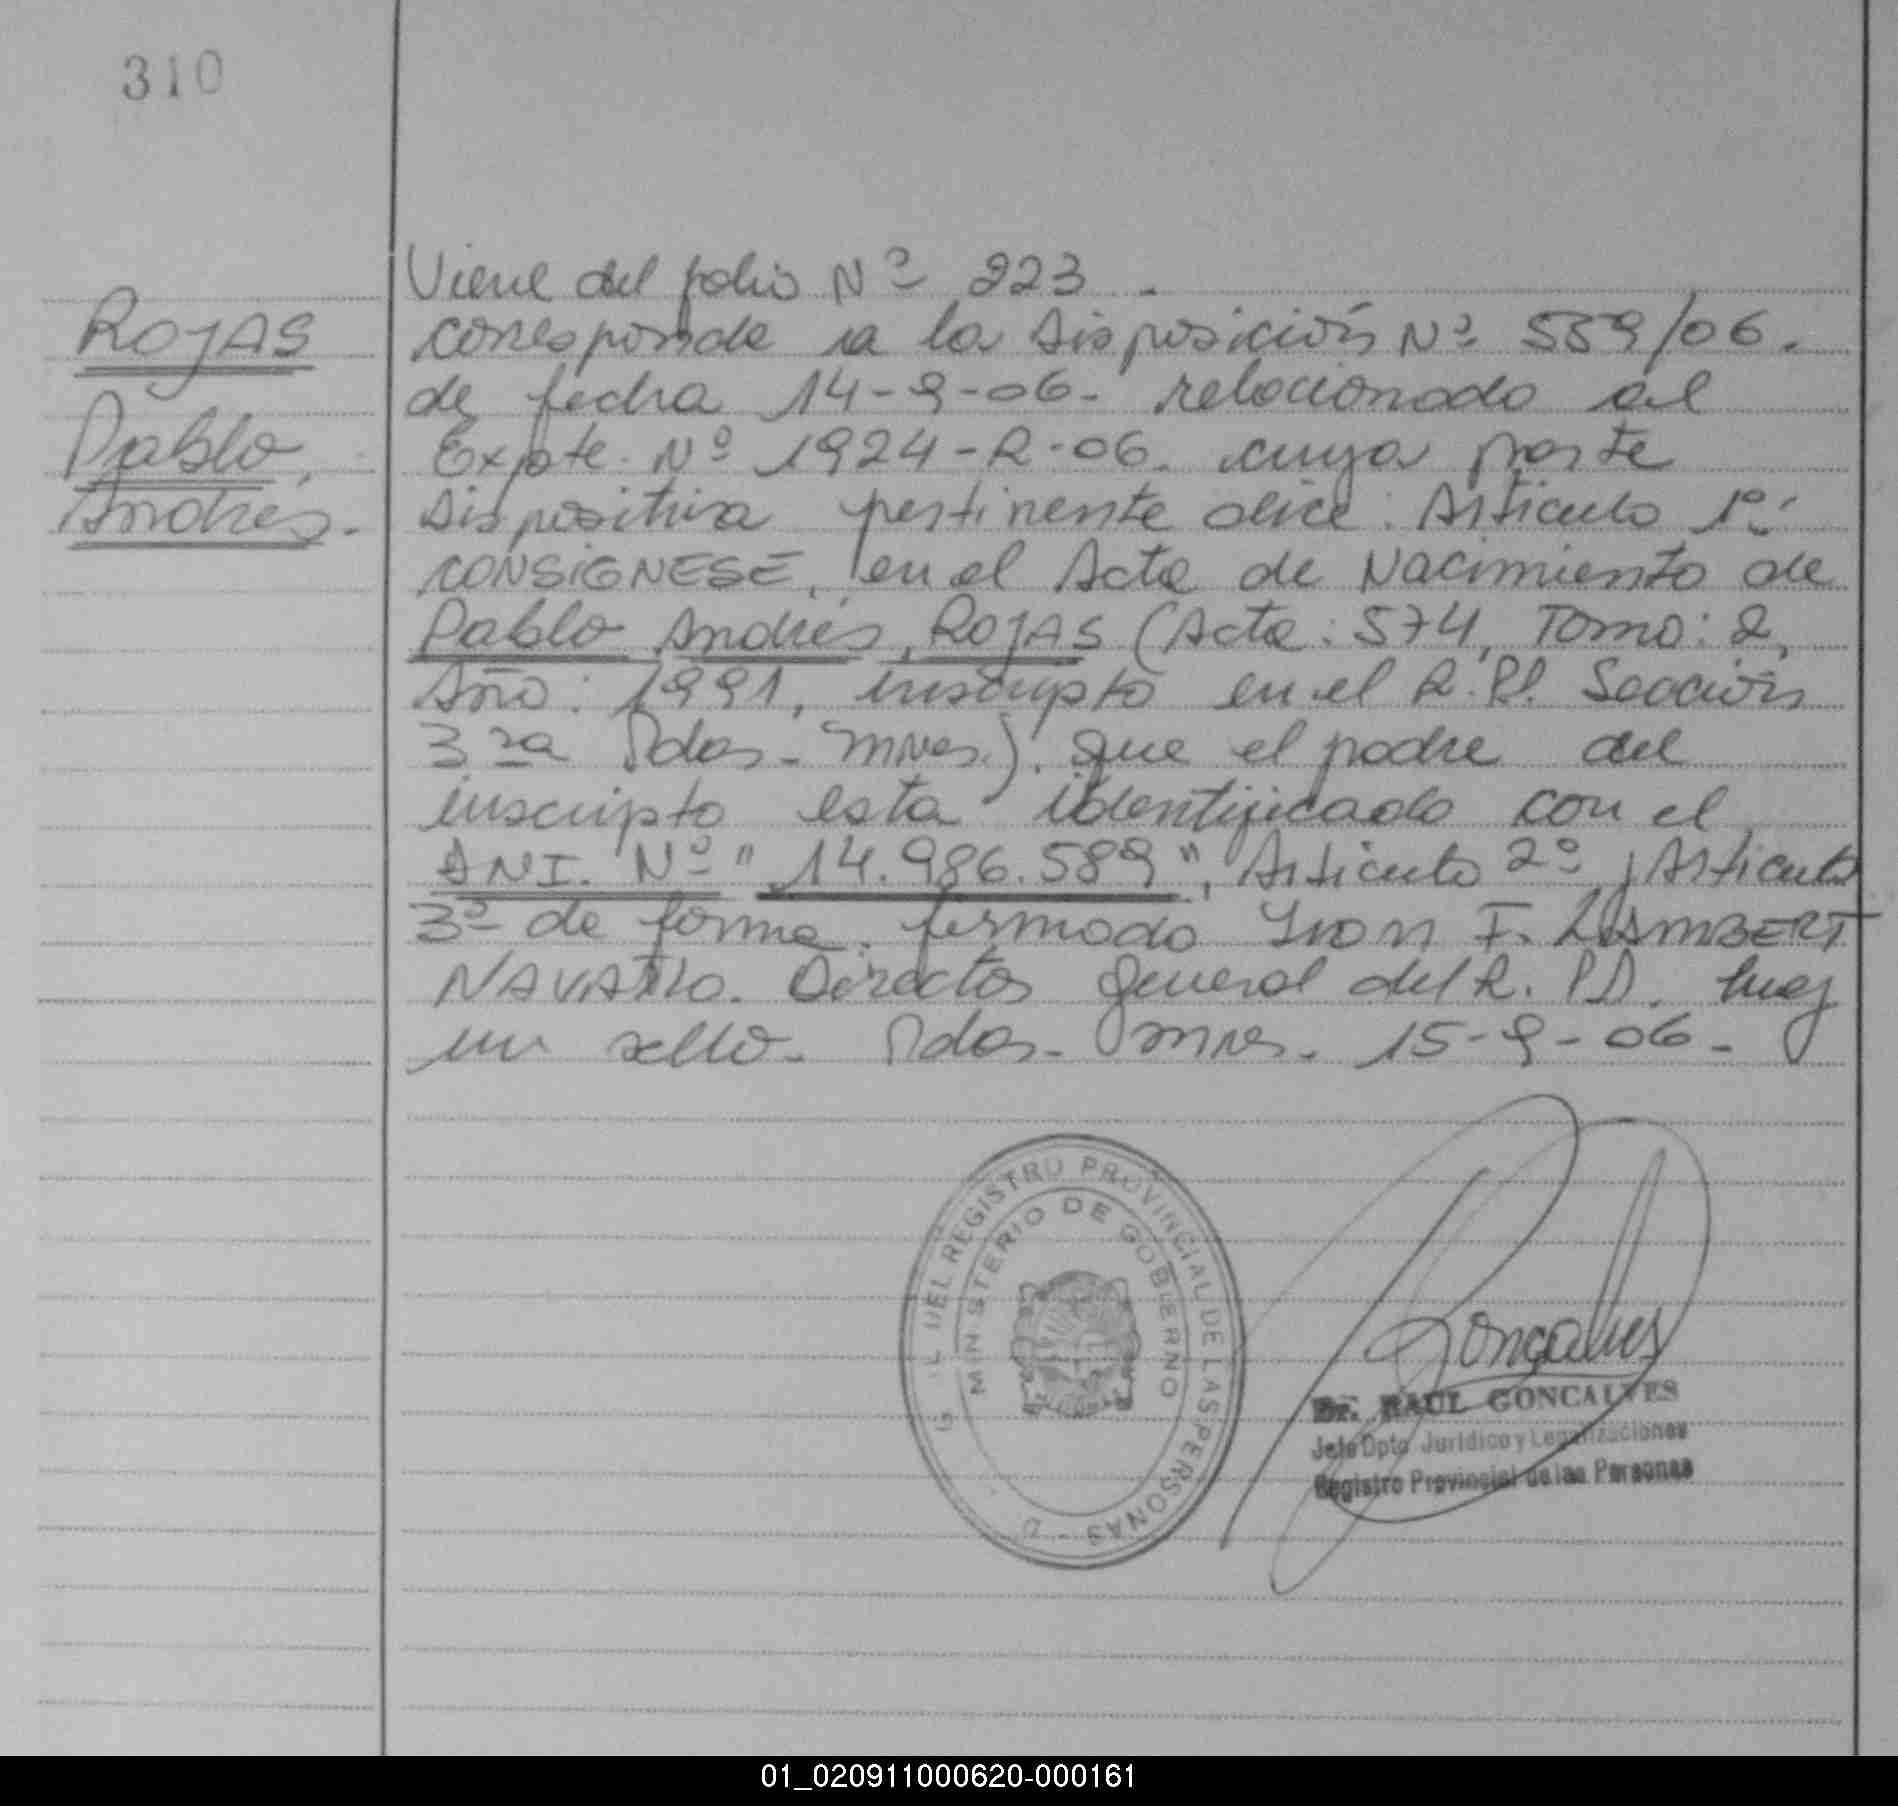 310
ROJAS
Pablo,
Andrés.
Viene del folio Nº 223.
corresponde a la Disposición Nº 559/06.
de fecha 14-9-06. relacionado al
Expte. Nº 1924-R-06. cuya parte
Dispositiva pertinente dice: Articulo 1º:
CONSIGNESE, en el Acta de Nacimiento de
Pablo Andrés, ROJAS (Acta: 574, Tomo: 2,
Año: 1991, inscripto en el R.P. Sección
3ra Pdas-Mnes.). que el padre del
inscripto esta identificado con el
DNI. Nº "14.986.589", Articulo 2º y Articulo
3º de forma. firmado Ivon F. LAMBERT
NAVARRO. Director General del R.P.P. hay
un sello. Pdas. Mnes. 15-9-06.
DEL REGISTRO PROVINCIAL DE LAS PERSONAS
MINISTERIO DE GOBIERNO
Goncalves
Dr. RAUL GONCALVES
Jefe Dpto Jurídico y Legalizaciones
Registro Provincial de las Personas
01_020911000620-000161